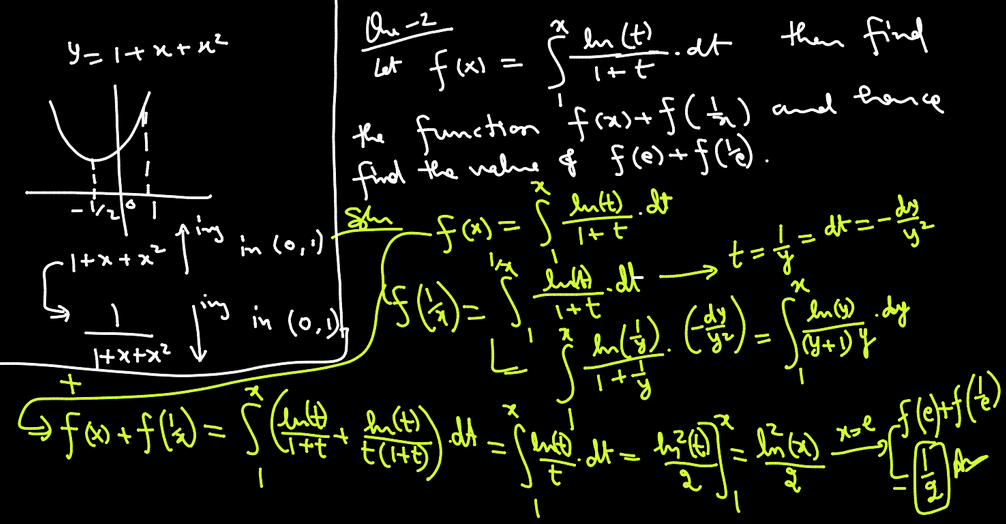 y = 1 + x + x²
-1/2 0 1
1+x+x² ↑ing in (0,1)
1/(1+x+x²) ↓ing in (0,1)
Qn-2
Let f(x) = ∫₁ˣ ln(t)/(1+t) .dt then find
the function f(x) + f(1/x) and hence
find the value of f(e) + f(1/e).
Soln f(x) = ∫₁ˣ ln(t)/(1+t) .dt
f(1/x) = ∫₁^(1/x) ln(t)/(1+t) .dt → t = 1/y = dt = -dy/y²
∫₁ˣ ln(1/y)/(1+1/y) . (-dy/y²) = ∫₁ˣ ln(y)/((y+1)y) .dy
+
→ f(x) + f(1/x) = ∫₁ˣ (ln(t)/(1+t) + ln(t)/(t(1+t))) .dt = ∫₁ˣ ln(t)/t .dt = ln²(t)/2]₁ˣ = ln²(x)/2 x=e → f(e)+f(1/e)
= 1/2 Ans